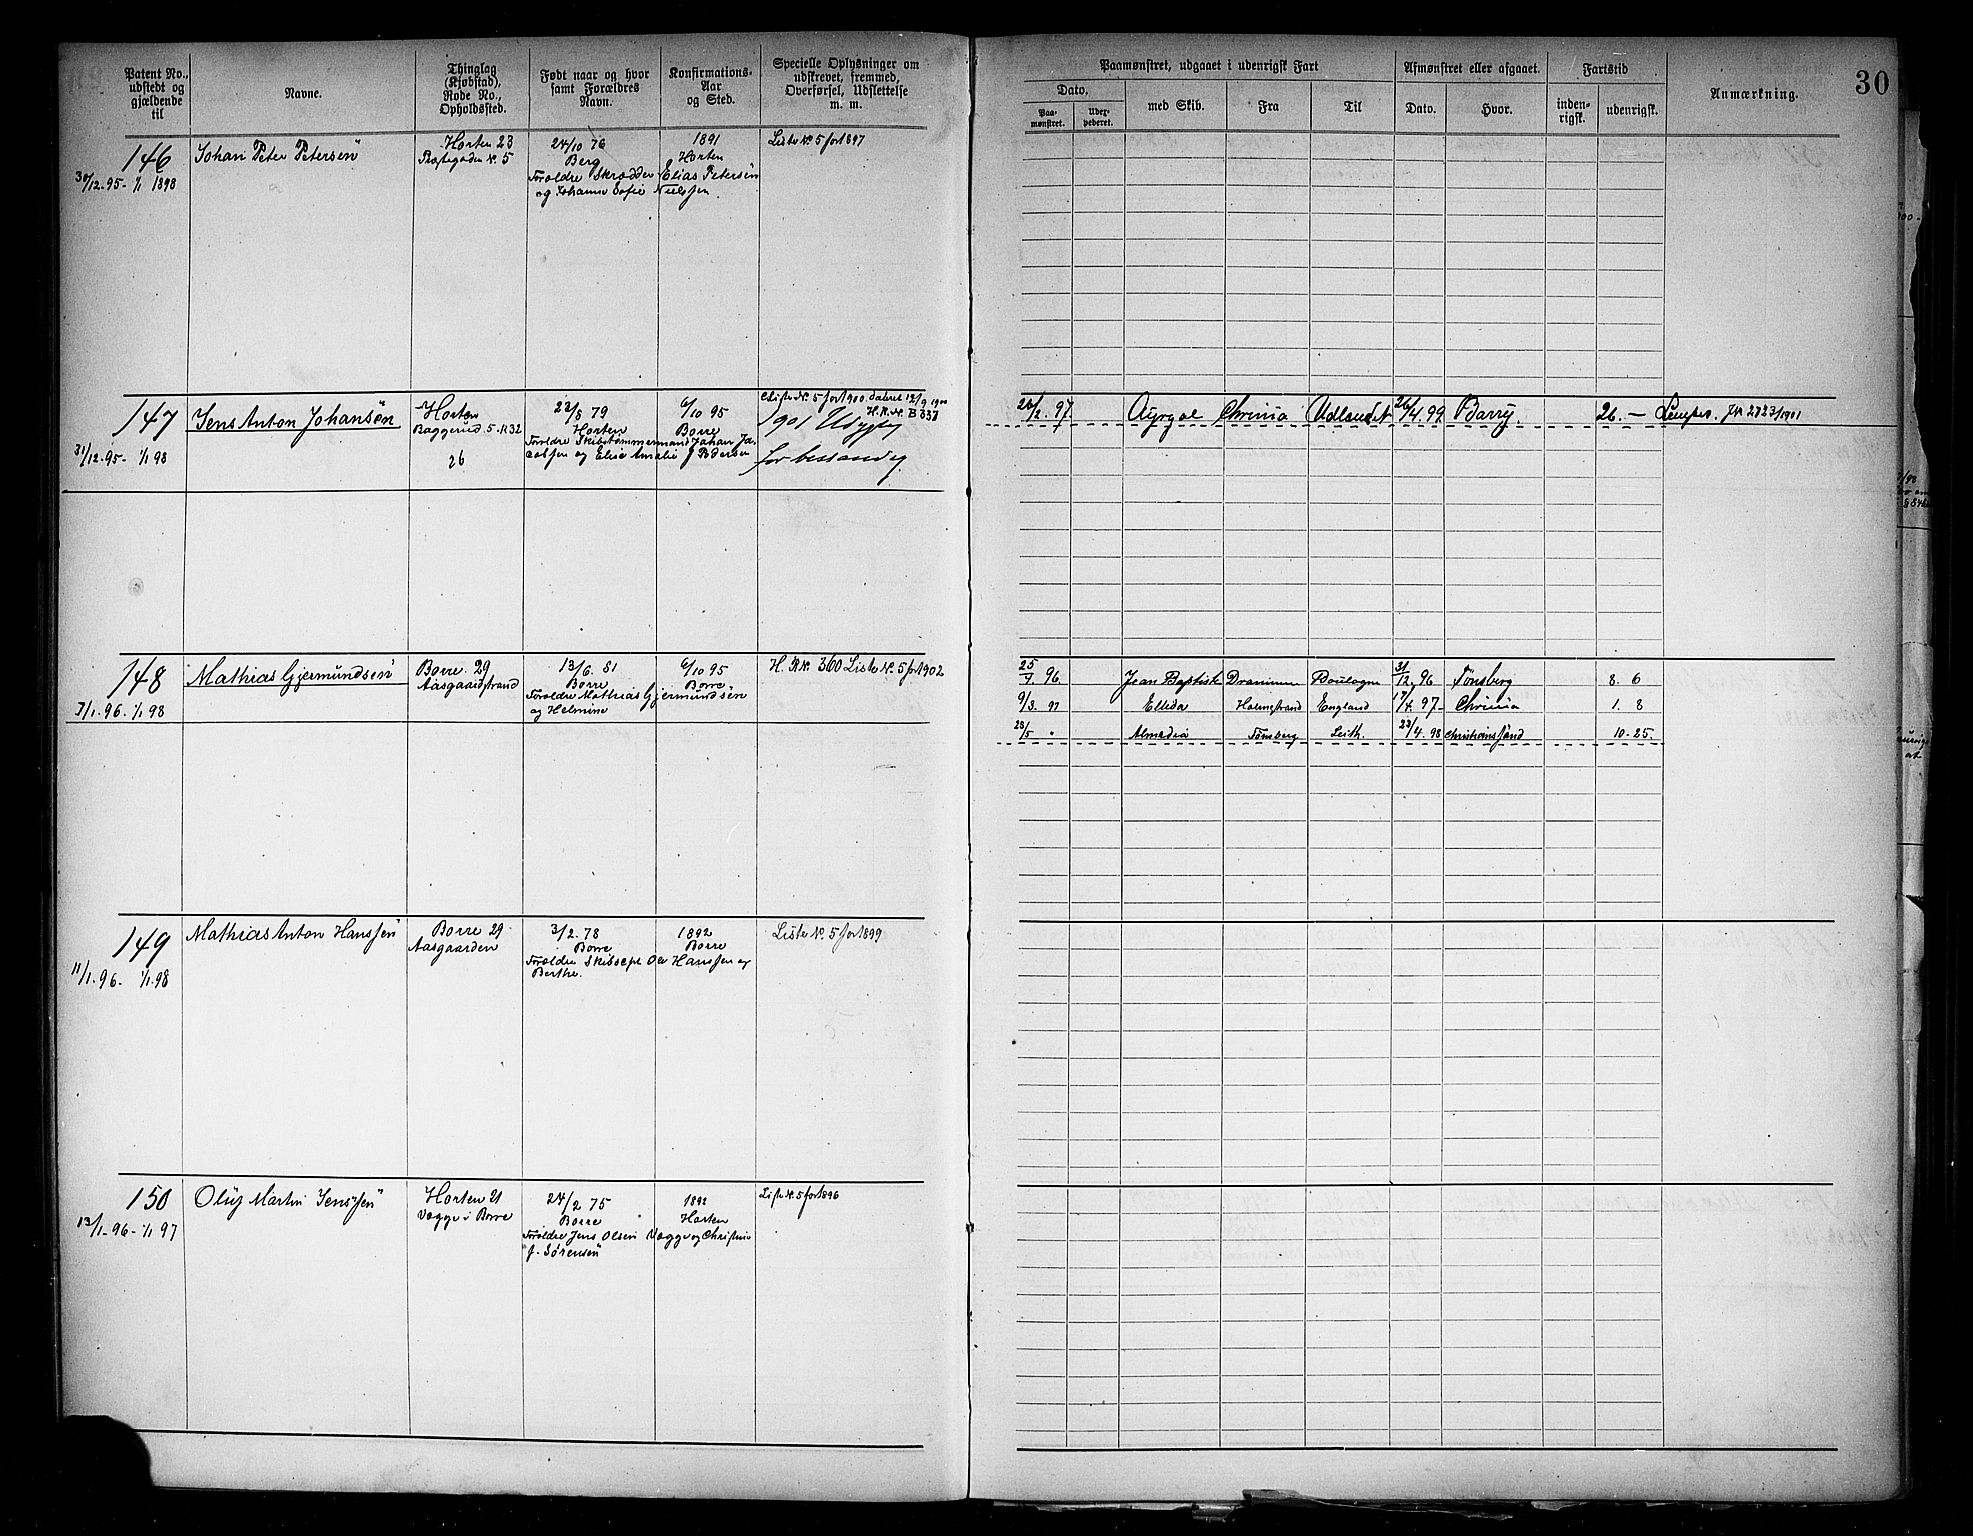 Patent No., udstedt og gjældende til
Navne.
Thinglag (Kjøbstad), Rode No., Opholdssted.
Født naar og hvor samt Forældres Navn.
Konfirmations-Aar og Sted.
Specielle Oplysninger om udskrevet, fremmed, Overførsel, Udslettelse m. m.
Paamønstret, udgaaet i udenrigsk Fart
Afmønstret eller afgaaet.
Fartstid
Anmærkning.
30
Dato.
med Skib.
Fra
Til
Dato.
Hvor.
inden-rigsk.
udenrigsk.
Paa-mønstret.
146
30/12.95 - 1/1 1898
Johan Peter Petersen
Horten 23
No. 5
24/10 76
Berg
1891
Horten
Forældre Skrædder Elias Petersen
og Johanne Sofie Nielssen
Liste No. 5 for 1897
147
31/12.95 - 1/1 98
Jens Anton Johansen
Horten
Baggerud 5. R 32
26
23/8 79
Horten
6/10 95
Borre
Forældre Skibstømmermand Johan Ja-
cobsen og Elise Amalie J. Pedersen
Liste No. 5 for 1900 dateret 12/9 1900
H. R. No. B 337
1901 Udygtig
for bestandig
2. 97.
Chrinia
Udlandet
26/4. 99
Barry.
26. -
J.No 2723/1901
148
7/1. 96. 1/1 98
Mathias Gjermundsen
Borre. 29
Aasgaardstrand
13/6. 81
Borre
6/10 95
Borre
Forældre Mathias Gjermundsen
og Helmine
H. R No. 360 Liste No. 5 for 1902
25/7. 96.
Jean Baptiste
Drammen
Boulogne
31/12. 96
Tønsberg
8. 6
9/3. 97
Ellida
Holmestrand
England
17/4. 97
Chrinia
1. 8
28/5 "
Almedia
Tønsberg
Leith.
23/4. 98
Christianssand
10 - 25.
149
11/1. 96. - 1/1. 98
Mathias Anton Hanssen
Borre 29
Aasgaarden
3/2. 78
Borre
1892
Borre
Forældre Skibscpt Ole Hanssen og
Berthe.
Liste No. 5 for 1899
150
13/1. 96 - 1/1 97
Oluf Martin Jenssen
Horten 21
Vagge i Borre
24/2 75
Borre
1892
Horten
Forældre Jens Olsen Vagge og Christine
J. Sørensen
Liste No. 5 for 1896